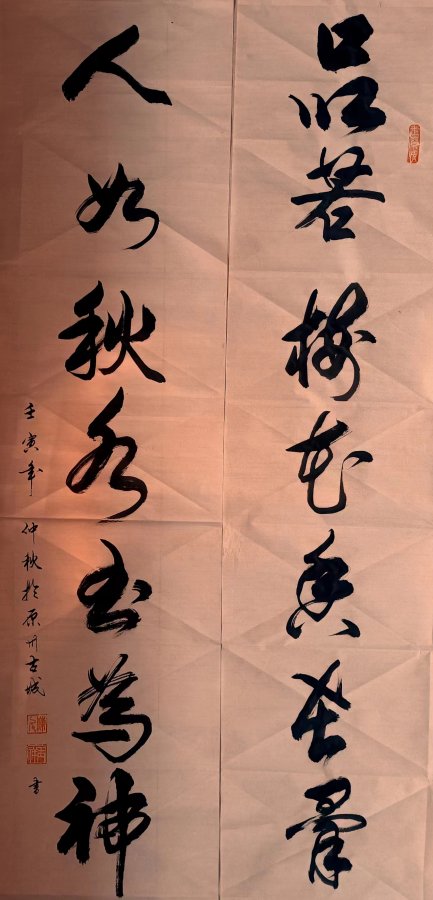 品若梅花香在骨
人如秋水玉為神
壬寅年仲秋於原州古城
書